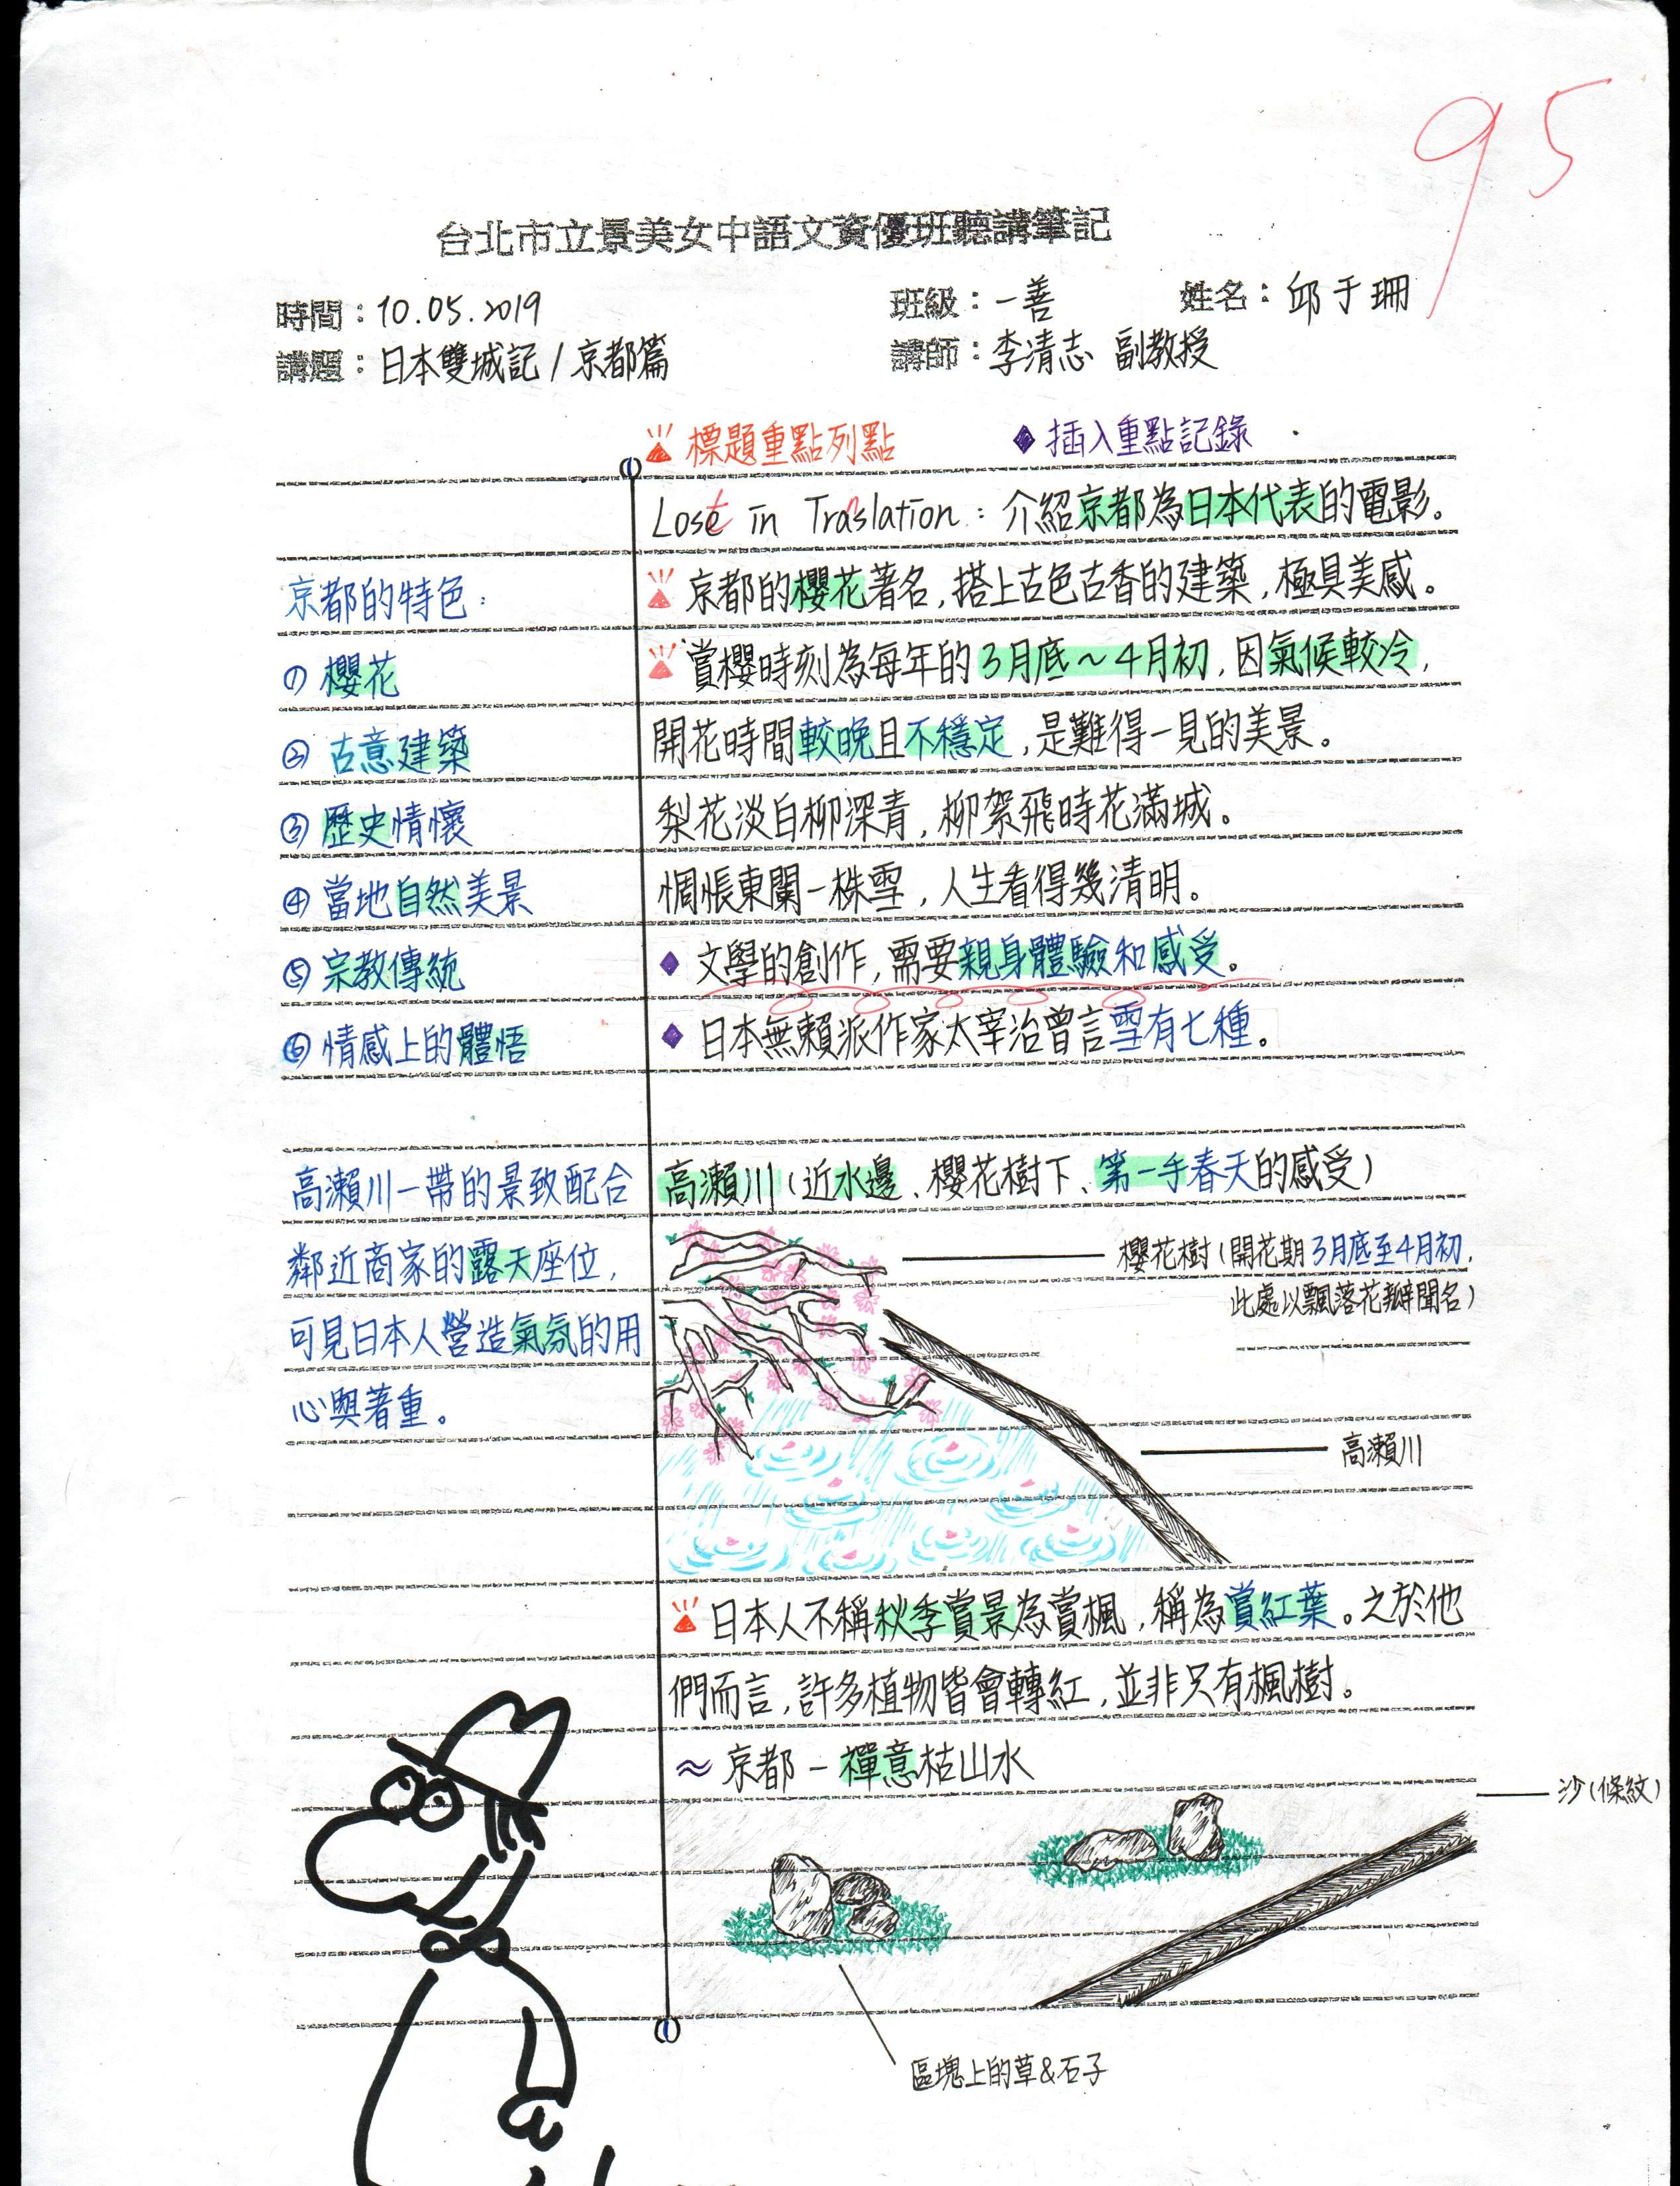 95
台北市立景美女中語文資優班聽講筆記
時間：10.05.2019 班級：一善 姓名：邱于珊
講題：日本雙城記/京都篇 講師：李清志 副教授
標題重點列點 ◆ 插入重點記錄
Lost in Translation：介紹京都為日本代表的電影。
京都的特色：
① 櫻花
② 古意建築
③ 歷史情懷
④ 當地自然美景
⑤ 宗教傳統
⑥ 情感上的體悟
京都的櫻花著名，搭上古色古香的建築，極具美感。
賞櫻時刻為每年的3月底～4月初，因氣候較冷，
開花時間較晚且不穩定，是難得一見的美景。
梨花淡白柳深青，柳絮飛時花滿城。
惆悵東闌一株雪，人生看得幾清明。
◆ 文學的創作，需要親身體驗和感受。
◆ 日本無賴派作家太宰治曾言雪有七種。
高瀨川一帶的景致配合
鄰近商家的露天座位，
可見日本人營造氣氛的用
心與著重。
高瀨川（近水邊、櫻花樹下、第一手春天的感受）
櫻花樹（開花期3月底至4月初，
此處以飄落花瓣聞名）
高瀨川
日本人不稱秋季賞景為賞楓，稱為賞紅葉。之於他
們而言，許多植物皆會轉紅，並非只有楓樹。
≈ 京都－禪意枯山水
沙（條紋）
區塊上的草&石子